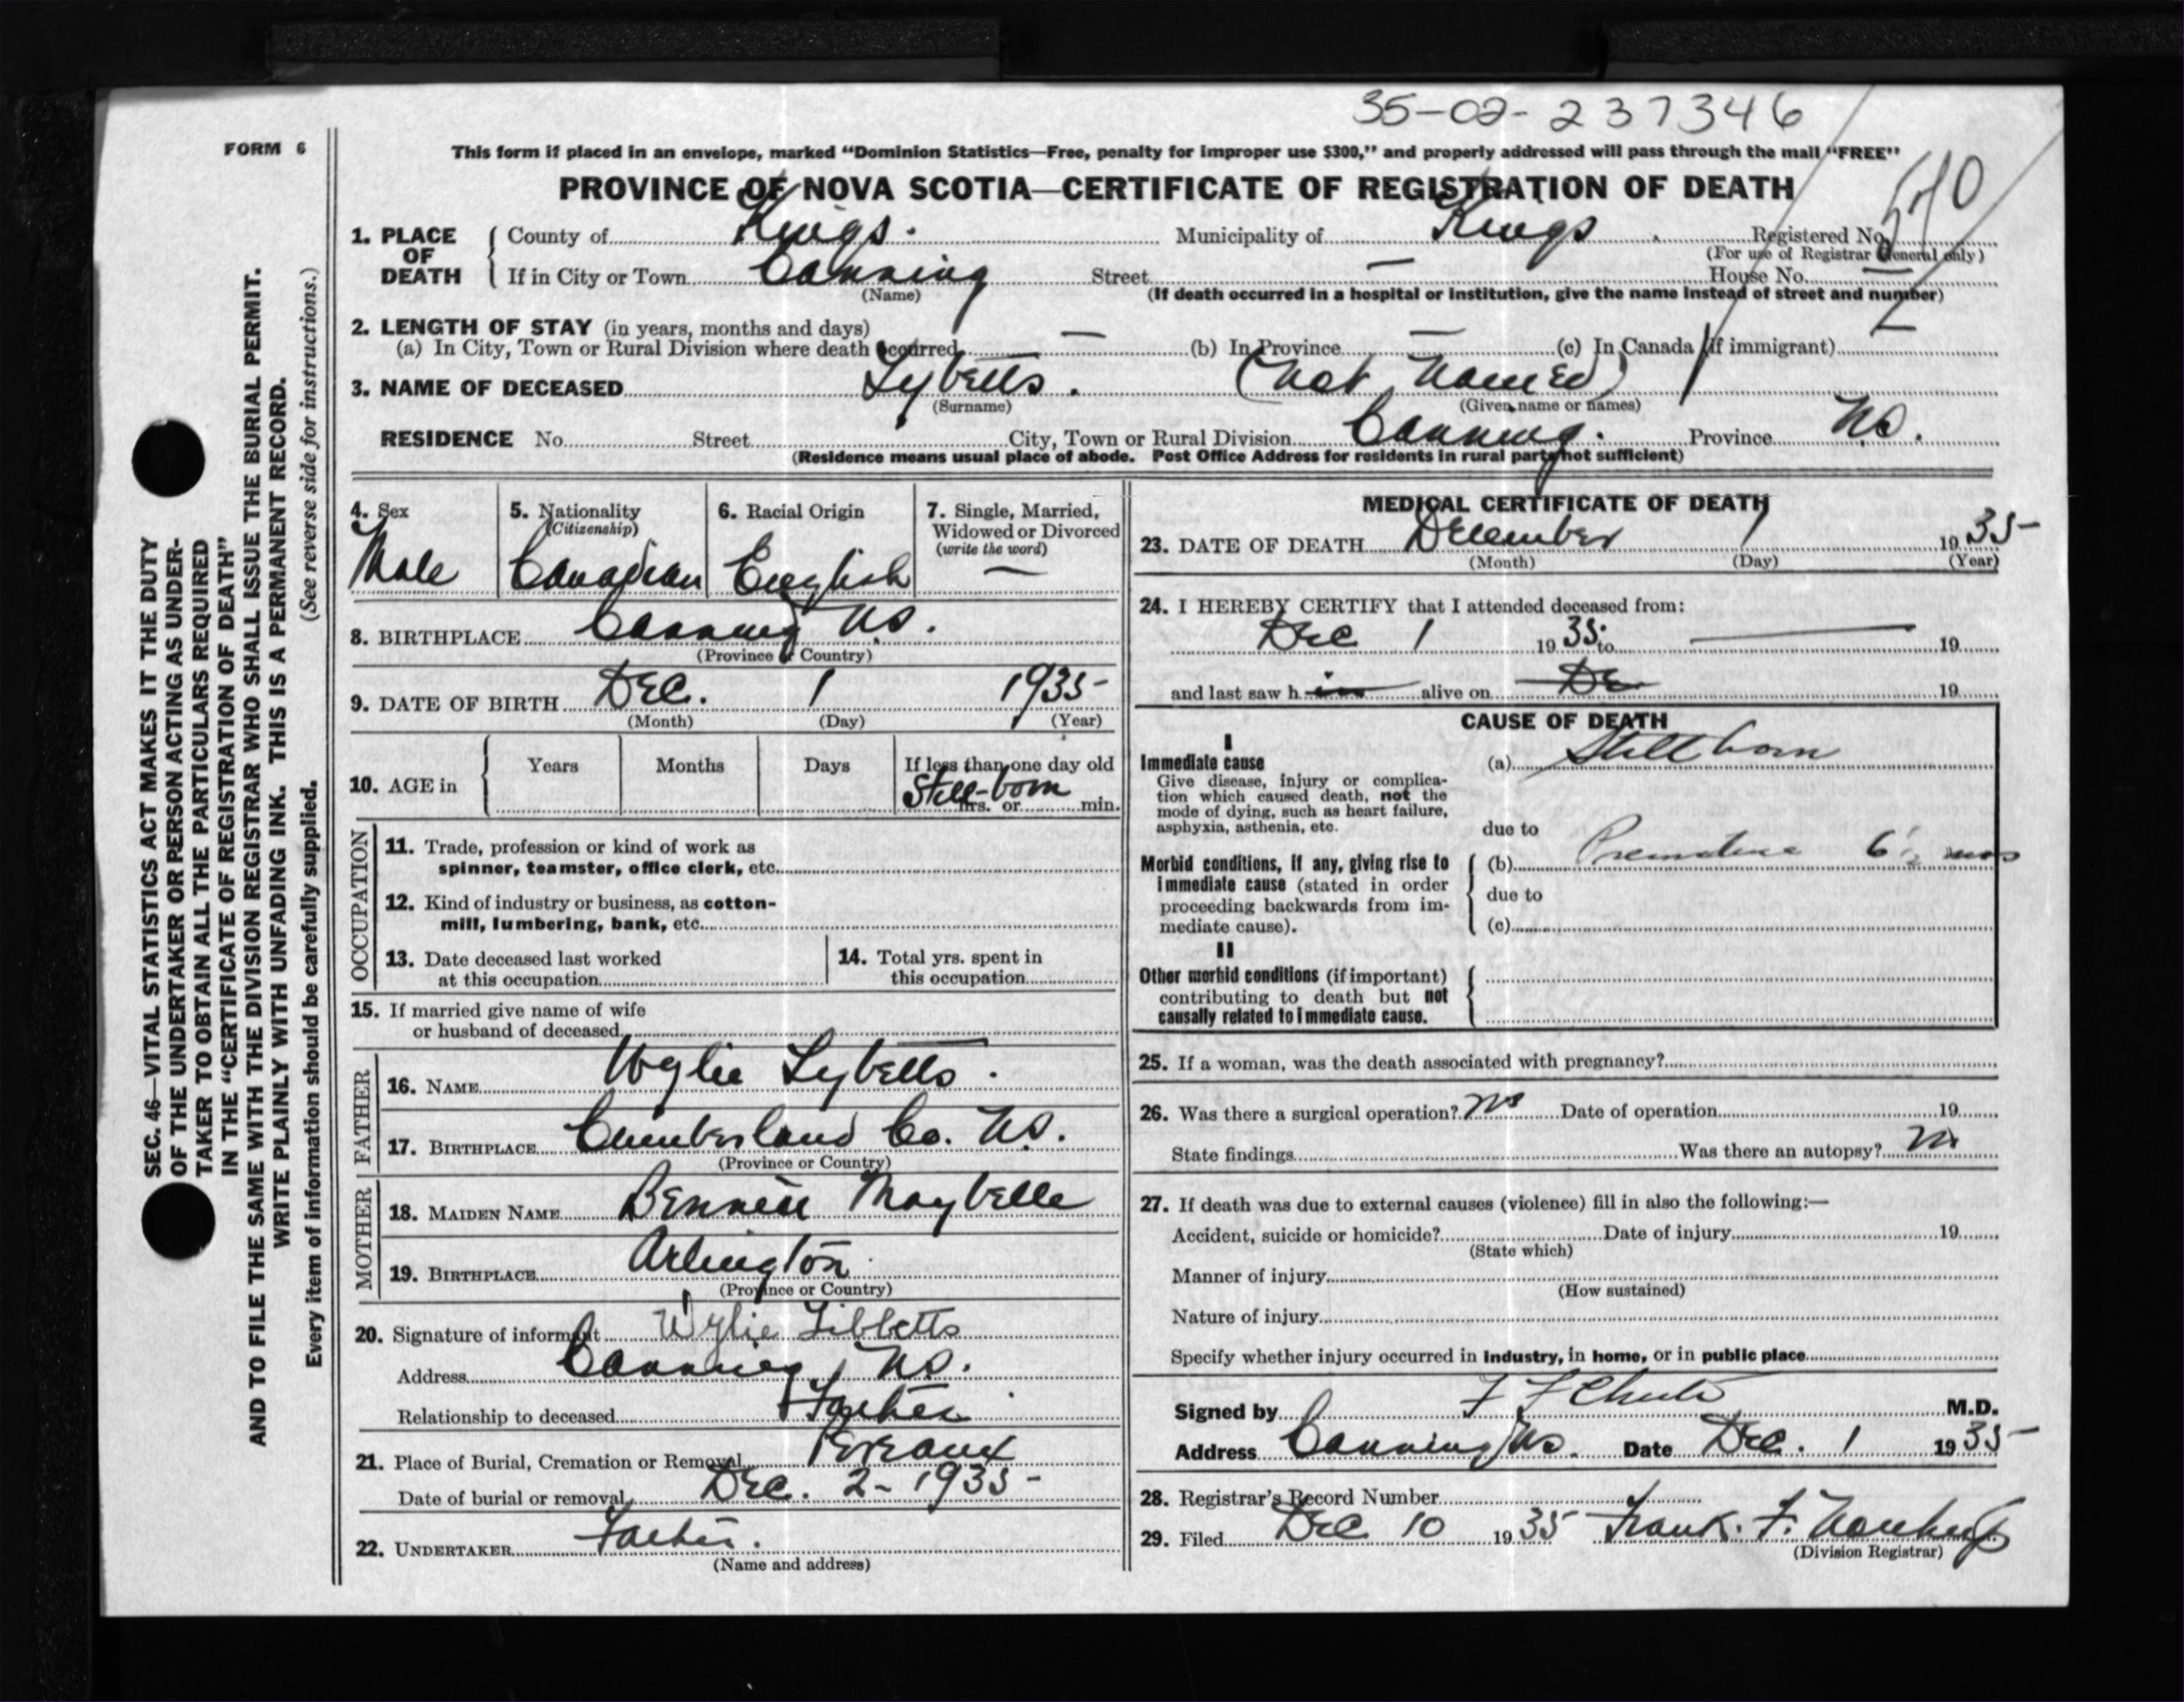 35-02-237346
FORM 6
This form if placed in an envelope, marked "Dominion Statistics—Free, penalty for improper use $300," and properly addressed will pass through the mail "FREE"
PROVINCE OF NOVA SCOTIA—CERTIFICATE OF REGISTRATION OF DEATH
1. PLACE OF DEATH County of Kings. Municipality of Kings Registered No.
(For use of Registrar General only)
If in City or Town Canning Street — House No. —
(Name) (If death occurred in a hospital or institution, give the name instead of street and number)
2. LENGTH OF STAY (in years, months and days)
(a) In City, Town or Rural Division where death occurred — (b) In Province — (c) In Canada (if immigrant)
3. NAME OF DECEASED Lybetts. (Not Named)
(Surname) (Given name or names)
RESIDENCE No. Street City, Town or Rural Division Canning. Province N.S.
(Residence means usual place of abode. Post Office Address for residents in rural parts not sufficient)
4. Sex Male
5. Nationality (Citizenship) Canadian
6. Racial Origin English
7. Single, Married, Widowed or Divorced (write the word) —
8. BIRTHPLACE Canning N.S.
(Province or Country)
9. DATE OF BIRTH Dec. 1 1935
(Month) (Day) (Year)
10. AGE in Years Months Days If less than one day old
Still-born hrs. or min.
OCCUPATION
11. Trade, profession or kind of work as
spinner, teamster, office clerk, etc.
12. Kind of industry or business, as cotton-
mill, lumbering, bank, etc.
13. Date deceased last worked
at this occupation
14. Total yrs. spent in
this occupation
15. If married give name of wife
or husband of deceased
FATHER
16. NAME Wylie Lybetts.
17. BIRTHPLACE Cumberland Co. N.S.
(Province or Country)
MOTHER
18. MAIDEN NAME Bennett Maybelle
19. BIRTHPLACE Arlington
(Province or Country)
20. Signature of informant Wylie Tibbetts
Address Canning, N.S.
Relationship to deceased Father
21. Place of Burial, Cremation or Removal Pereaux
Date of burial or removal Dec. 2 - 1935 -
22. UNDERTAKER Father.
(Name and address)
MEDICAL CERTIFICATE OF DEATH
23. DATE OF DEATH December 1 1935
(Month) (Day) (Year)
24. I HEREBY CERTIFY that I attended deceased from:
Dec 1 1935 to — 19
and last saw h im alive on De 19
CAUSE OF DEATH
I
Immediate cause (a) Still born
Give disease, injury or complica-
tion which caused death, not the
mode of dying, such as heart failure,
asphyxia, asthenia, etc.
due to
Morbid conditions, if any, giving rise to (b) Premature 6½ mos
immediate cause (stated in order due to
proceeding backwards from im-
mediate cause). (c)
II
Other morbid conditions (if important)
contributing to death but not
causally related to immediate cause.
25. If a woman, was the death associated with pregnancy?
26. Was there a surgical operation? no Date of operation 19
State findings Was there an autopsy? no
27. If death was due to external causes (violence) fill in also the following:—
Accident, suicide or homicide? Date of injury 19
(State which)
Manner of injury
(How sustained)
Nature of injury
Specify whether injury occurred in industry, in home, or in public place
Signed by F F Chute M.D.
Address Canning N.S. Date Dec. 1 1935
28. Registrar's Record Number
29. Filed Dec 10 1935 Frank. F.
(Division Registrar)
SEC. 46—VITAL STATISTICS ACT MAKES IT THE DUTY
OF THE UNDERTAKER OR PERSON ACTING AS UNDER-
TAKER TO OBTAIN ALL THE PARTICULARS REQUIRED
IN THE "CERTIFICATE OF REGISTRATION OF DEATH"
AND TO FILE THE SAME WITH THE DIVISION REGISTRAR WHO SHALL ISSUE THE BURIAL PERMIT.
WRITE PLAINLY WITH UNFADING INK. THIS IS A PERMANENT RECORD.
Every item of information should be carefully supplied. (See reverse side for instructions.)